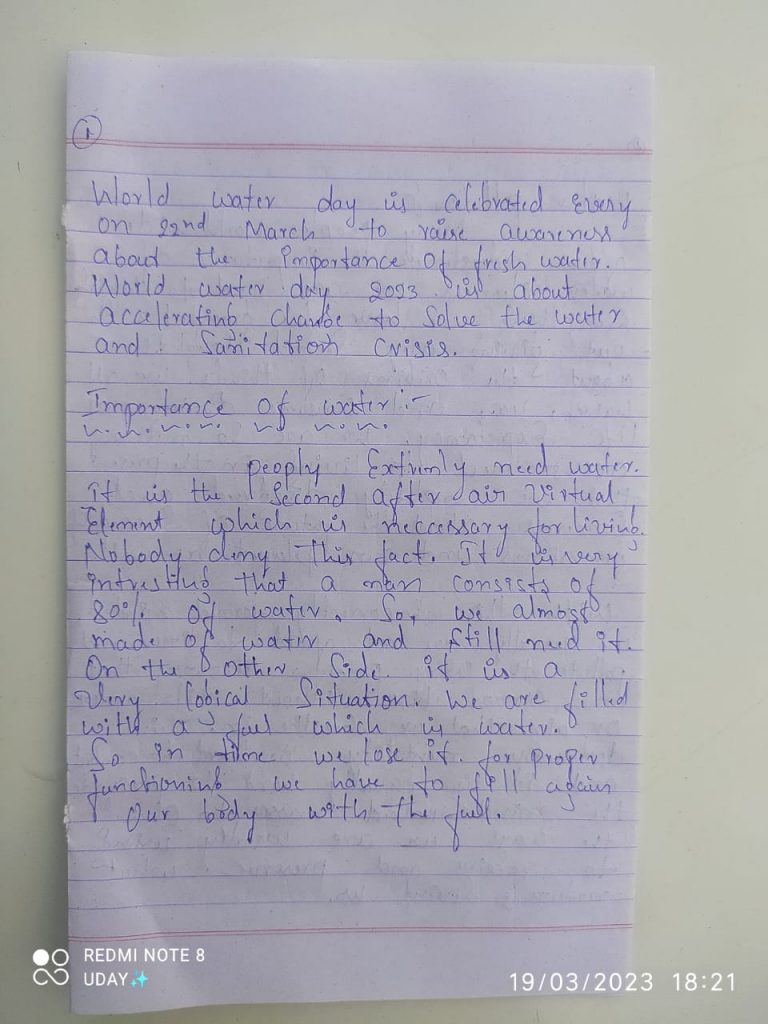 1
World water day is celebrated Every
on 22nd March to raise awareness
about the importance of fresh water.
World water day 2023 is about
accelerating change to solve the water
and Sanitation crisis.
Importance of water :-
peoply Extrimly need water.
It is the Second after air virtual
Element which is neccessary for living.
Nobody deny This fact. It is very
intresting that a man consists of
80% of water. So, we almost
made of water and still need it.
On the other Side it is a
Very logical Situation. We are filled
with a fuel which is water.
So in time we lose it. for proper
functioning we have to fill again
Our body with the fuel.
REDMI NOTE 8
UDAY✨
19/03/2023 18:21